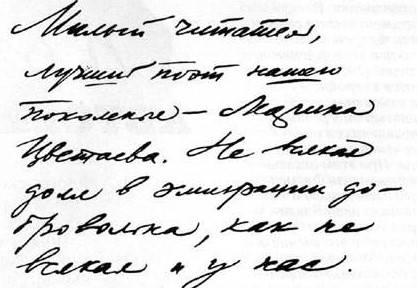 Милый читатель,
лучший поэт нашего
поколенья – Марина
Цветаева. Не всякая
доля в эмиграции до-
бровольна, как не
всякая и у нас